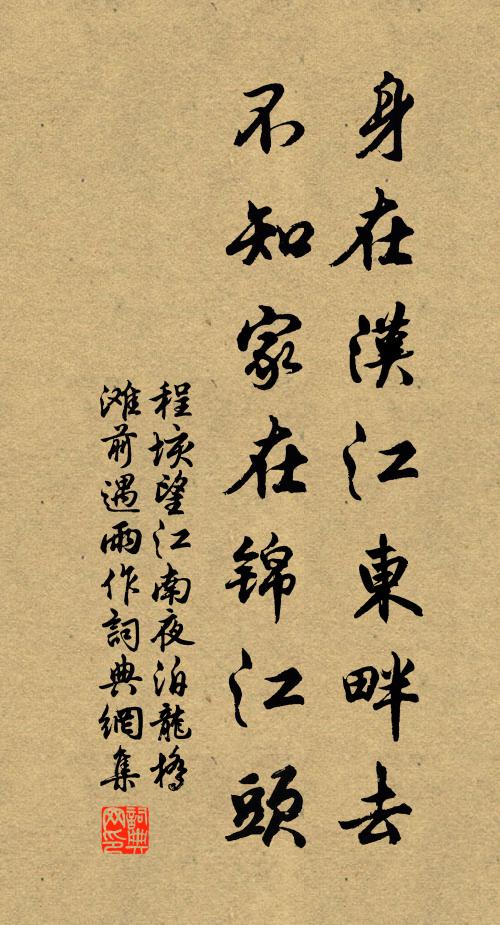 身在漢江東畔去
不知家在錦江頭
程垓望江南夜泊龍橋
滩前遇雨作詞典網集
詞典
网印